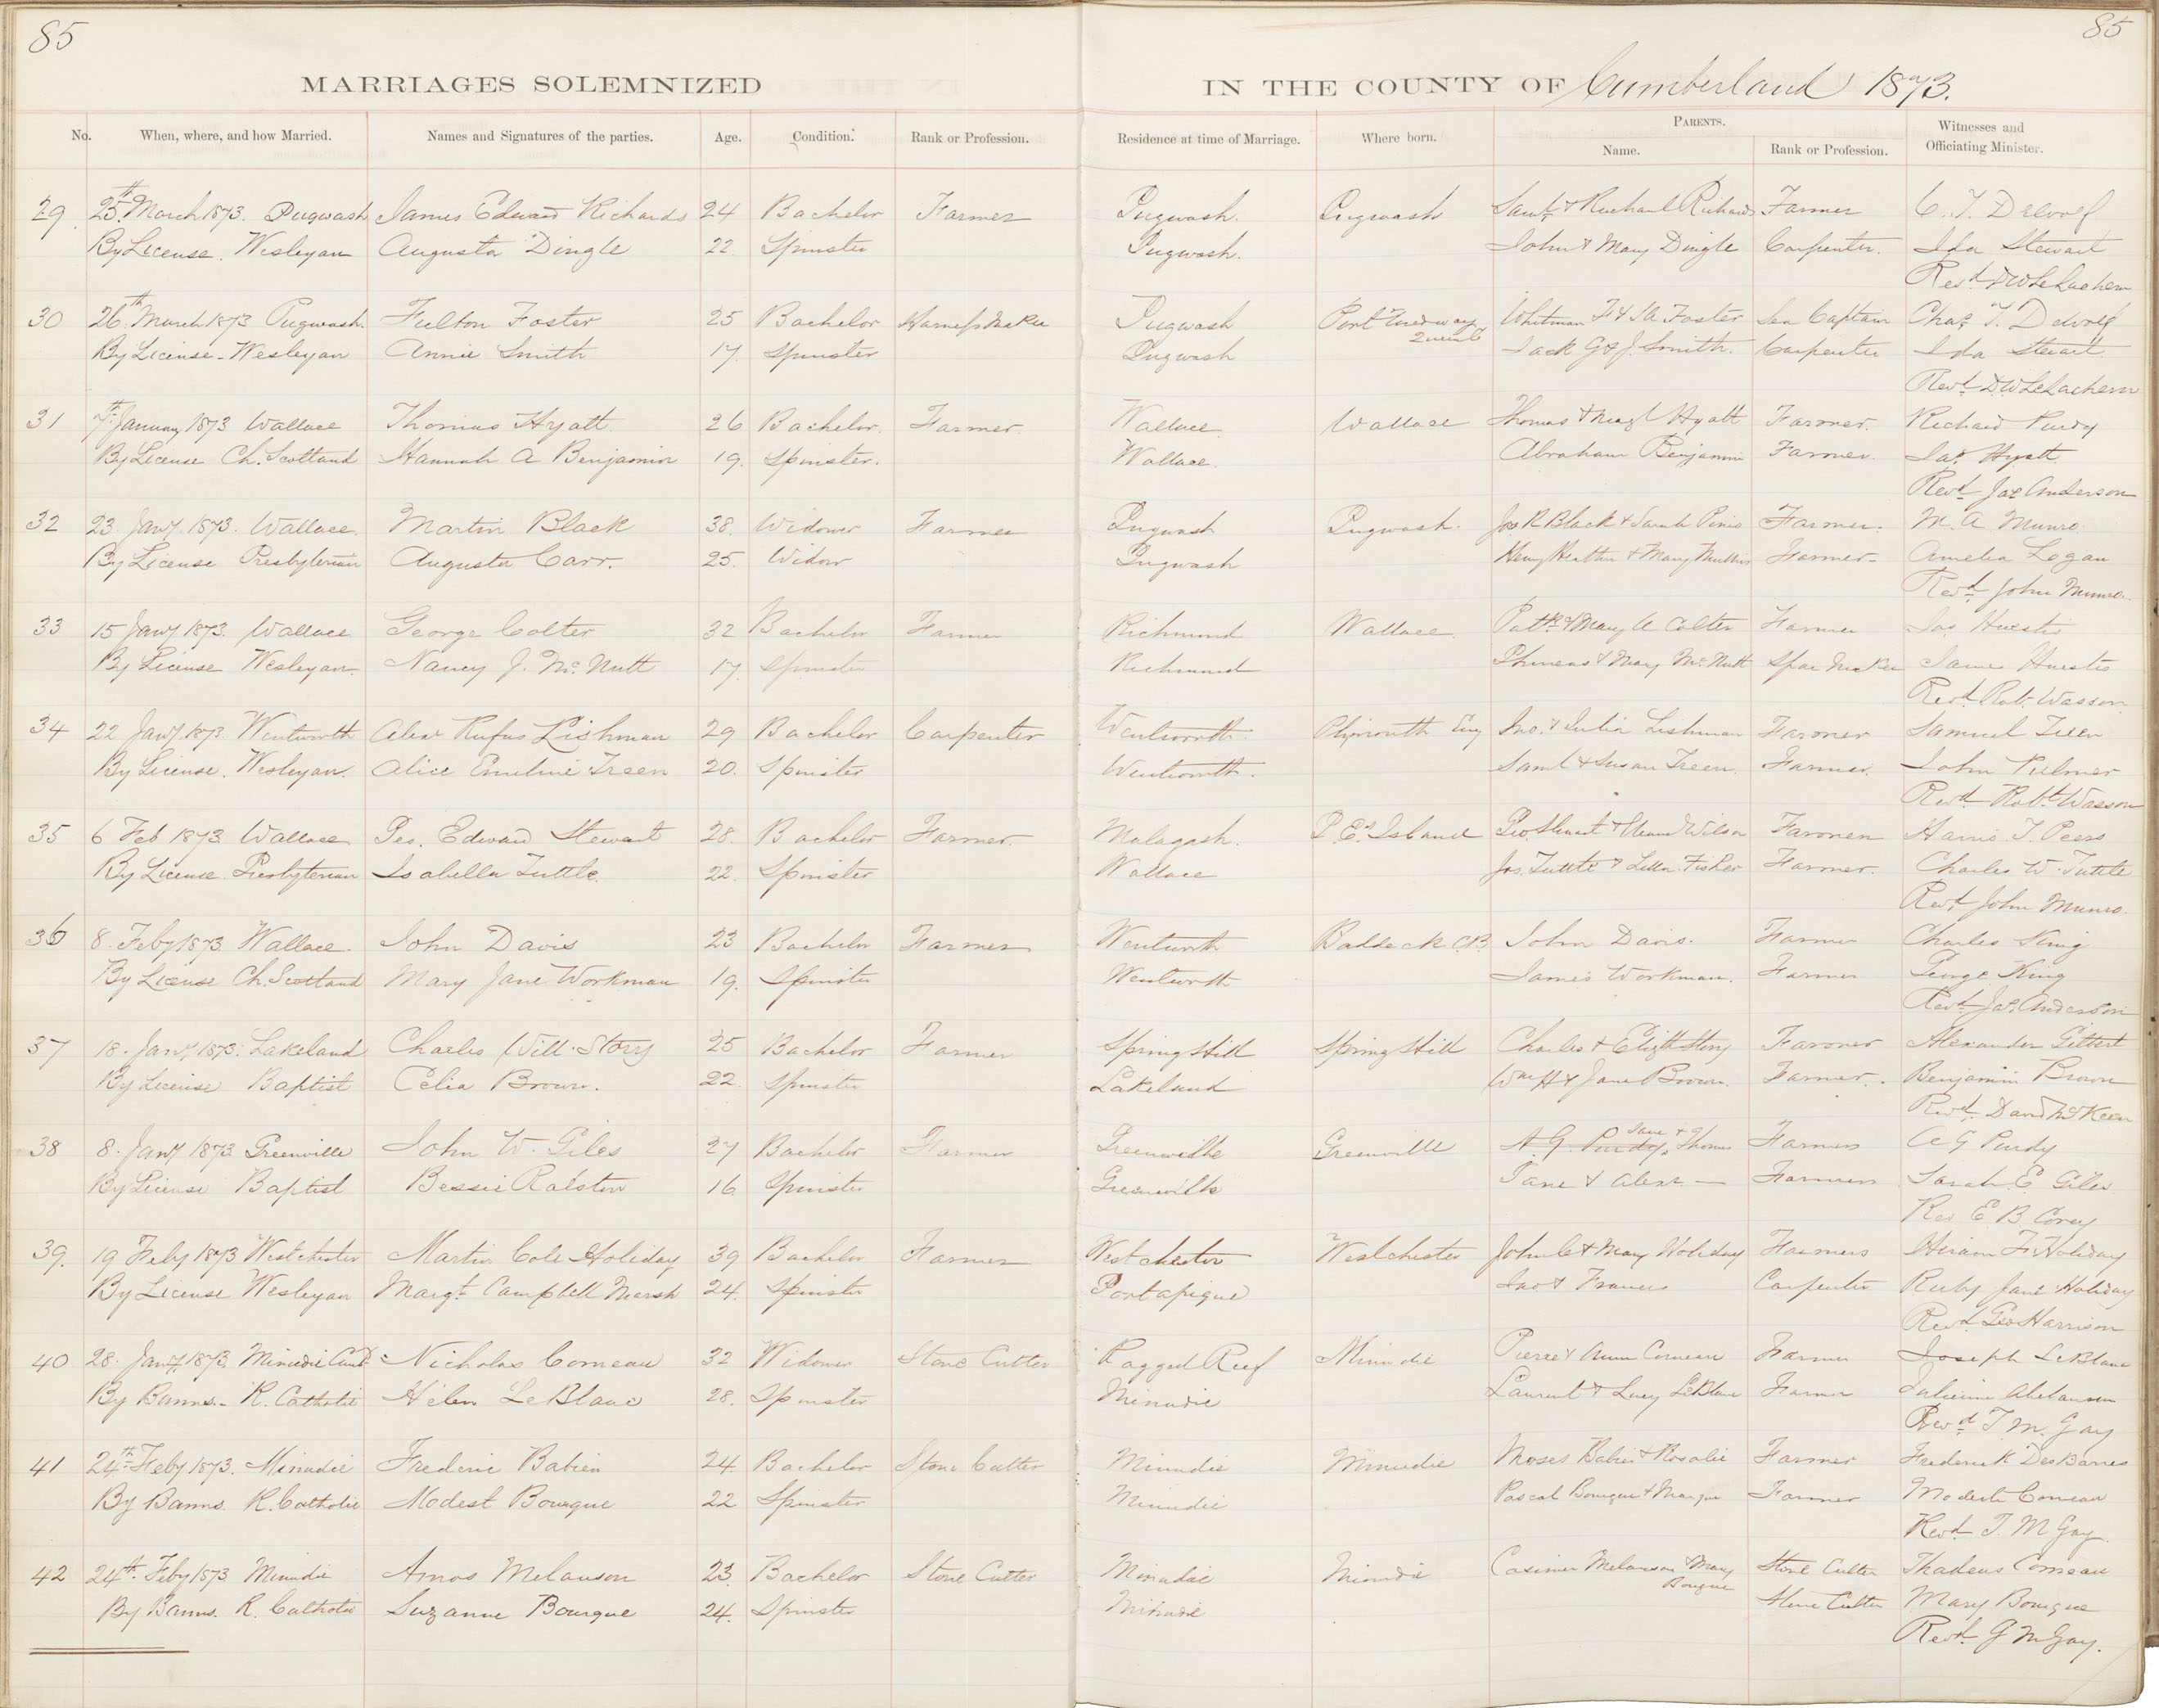 85
85
MARRIAGES SOLEMNIZED IN THE COUNTY OF Cumberland 1873.
No. When, where, and how Married. Names and Signatures of the parties. Age. Condition. Rank or Profession. Residence at time of Marriage. Where born. PARENTS. Name. Rank or Profession. Witnesses and Officiating Minister.
29. 25th March 1873. Pugwash James Edward Richards 24 Bachelor Farmer Pugwash. Pugwash Saml & Rachael Richards Farmer C. T. Dewolf
By License. Wesleyan Augusta Dingle 22 Spinster Pugwash. John & Mary Dingle Carpenter. Ida Stewart
Revd D W LeLachern
30 26th March 1873 Pugwash. Fulton Foster 25 Bachelor Harness Maker Pugwash Port Medway Queens Whitman F & S A Foster Sea Captain Chas T. Dewolf
By License - Wesleyan Annie Smith 17. Spinster Pugwash Jack G & J. Smith. Carpenter Ida Stewart.
Revd D W LeLachern
31 7th January 1873 Wallace Thomas Hyatt 26 Bachelor. Farmer. Wallace Wallace Thomas & Hyatt Farmer. Richard Purdy
By License Ch. Scotland Hannah A Benjamin 19. Spinster. Wallace. Abraham Benjamin Farmer. Jas. Hyatt
Revd Jas Anderson
32 23 Jany. 1873. Wallace. Martin Black 38. Widower Farmer Pugwash Pugwash. Jos R Black & Sarah Farmer. M. A Munro
By License Presbyterian Augusta Carr. 25. Widow Pugwash Henry & Mary Farmer - Amelia Logan
Revd John Munro.
33 15 Jany 1873. Wallace George Colter 32 Bachelor Farmer Richmond Wallace. Patk & Mary A Colter Farmer Jas Huestis
By License Wesleyan. Nancy J. McNutt 17. Spinster Richmond Phineas & Mary McNutt Spar Maker Huestis
Revd Robt. Wasson
34 22 Jany. 1873. Wentworth Alexr Rufus Lishman 29 Bachelor Carpenter Wentworth. Plymouth Eng Jno. & Julia Lishman Farmer Samuel Treen
By License. Wesleyan. Alice Emeline Treen 20. Spinster Wentworth. Saml & Susan Treen. Farmer. John
Revd Robt Wasson
35 6 Feb 1873 Wallace Geo. Edward Stewart 28. Bachelor Farmer. Malagash. P. E. Island Geo Stewart & Wilson Farmer Harris. T. Peers
By License. Presbyterian Isabella Tuttle. 22. Spinster Wallace Jos. Tuttle & Fisher Farmer. Charles W. Tuttle
Revd John Munro.
36 8. Feby 1873 Wallace. John Davis 23 Bachelor Farmer Wentworth Baddeck C.B. John Davis. Farmer Charles King
By License Ch. Scotland Mary Jane Workman 19. Spinster Wentworth James Workman. Farmer George King
Revd Jas. Anderson
37 18. Jany. 1873. Lakeland Charles Will. Story 25 Bachelor Farmer Spring Hill Spring Hill Charles & Elizth Story Farmer Alexander Gilbert
By License Baptist Celia Brown. 22. Spinster Lakeland Wm H & Jane Brown. Farmer. Benjamin Brown
Revd David McKeen
38 8. Jany 1873 Greenville John W. Giles 27 Bachelor Farmer Greenville Greenville A. G. Purdy. Jane & Thomas Farmers A G Purdy
By License Baptist Bessie Ralston 16. Spinster Greenville Jane & Alexr — Farmers Sarah E Giles
Rev E B Corey
39. 19 Feby 1873 Westchester Martin Cole Holiday 39 Bachelor Farmer Westchester Westchester John C & Mary Holiday Farmers Hiram F. Holiday
By License Wesleyan Margt. Campbell Marsh 24. Spinster Portapique Jno. & Frances Carpenter Ruby Jane Holiday
Revd Geo Harrison
40 28. Jany. 1873. Minudie Cumbd Nicholas Comeau 32 Widower Stone Cutter Ragged Reef Minudie Pierre & Ann Comeau Farmer Joseph LeBlanc
By Banns - R. Catholic Helen LeBlanc 28. Spinster Minudie Laurent & Lucy LeBlanc Farmer
Revd T. M. Gay
41 24th Feby 1873. Minudie Frederic Babien 24. Bachelor Stone Cutter Minudie Minudie Moses Babin & Rosalie Farmer Frederick DesBarres
By Banns. R. Catholic Modest Bourque 22 Spinster Minudie Pascal Bourque & Farmer Modeste Comeau
Revd T. M Gay.
42 24th. Feby 1873 Minudie Amos Melanson 23. Bachelor Stone Cutter Minudie Minudie Casimer Melanson & Mary Bourque Stone Cutter Thadeus Comeau
By Banns. R. Catholic Suzanne Bourque 24. Spinster Minudie Stone Cutter Mary Bourque
Revd. G M Gay.